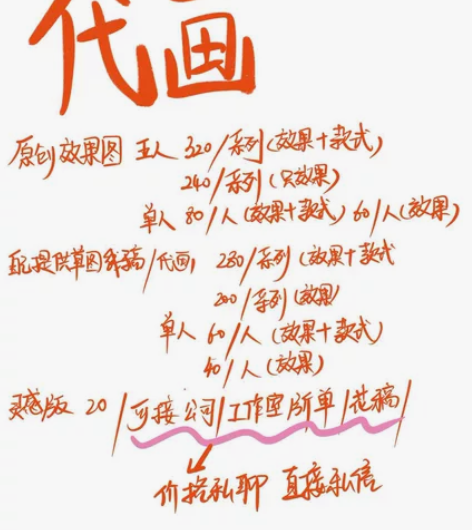 代画
原创效果图 五人 320/系列(效果+款式)
240/系列(只效果)
单人 80/人(效果+款式) 60/人(效果)
提供草图线稿/代画 280/系列(效果+款式
200/系列(效果)
单人 60/人(效果+款式)
40/人(效果)
灵感版 20/可接公司/工作室所单/花稿/
价格私聊 直接私信